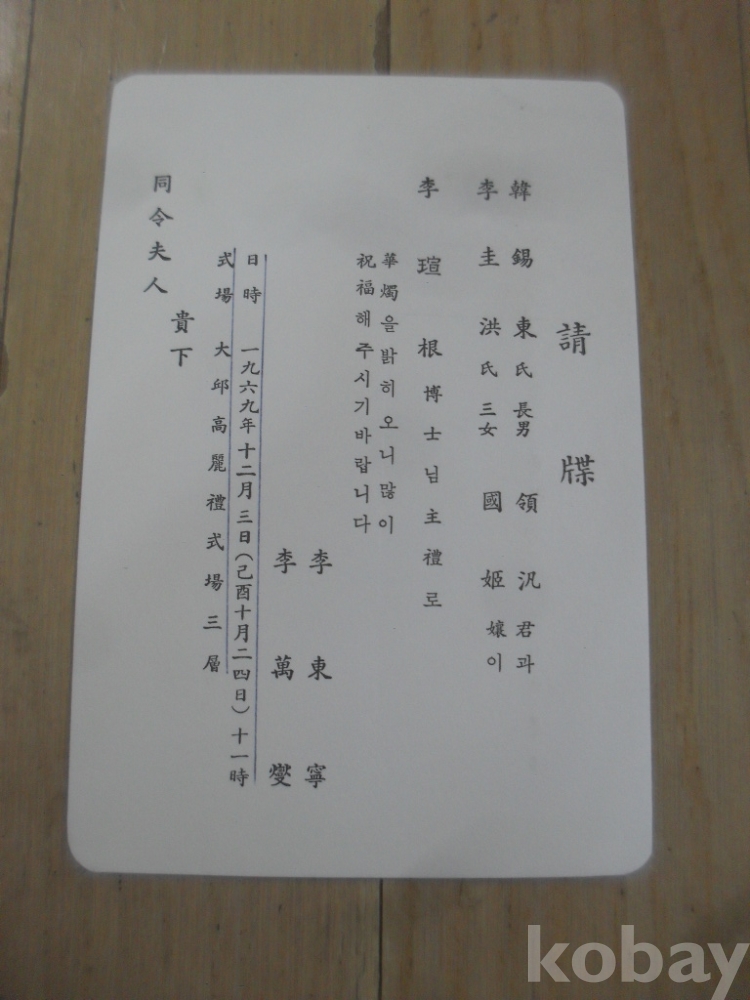 請牒
韓錫東氏長男 領汎君과
李圭洪氏三女 國姬孃이
李瑄根博士님主禮로
華燭을밝히오니많이
祝福해주시기바랍니다
李東寧
李萬燮
日時 一九六九年十二月三日(己酉十月二四日)十一時
式場 大邱高麗禮式場三層
貴下
同令夫人
kobay